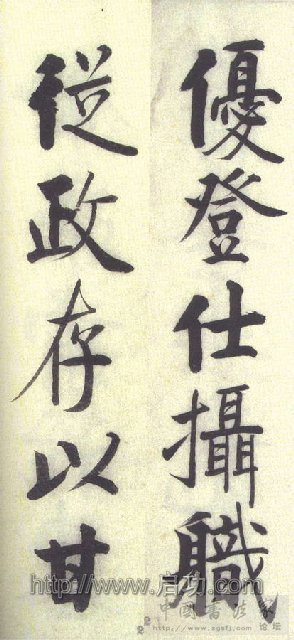 優登仕攝職
從政存以甘
http://www.启功.com
中國書法
论坛
http://www.sgsfj.com